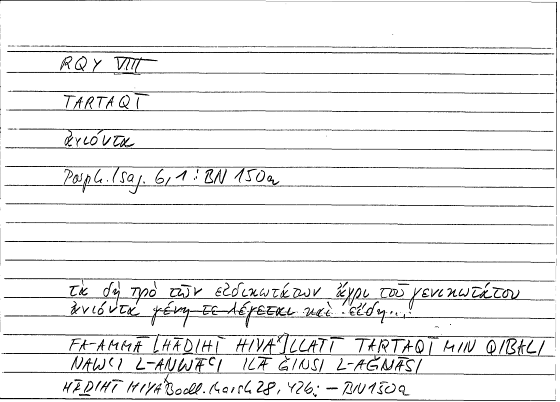 RQY VIII
TARTAQĪ
ἀνιόντα
Porph. Isag. 6,1 : BN 150a
τὰ δὴ πρὸ τῶν εἰδικωτάτων ἄχρι τοῦ γενικωτάτου
ἀνιόντα γένη τε λέγεται καὶ εἴδη...
FA-AMMĀ [HĀḎIHĪ HIYA] LLATĪ TARTAQĪ MIN QIBALI
NAWʿI L-ANWĀʿI ILĀ ĞINSI L-AĞNĀSI
HĀḎIHĪ HIYA Bodl. Marsh 28, 426; – BN 150a